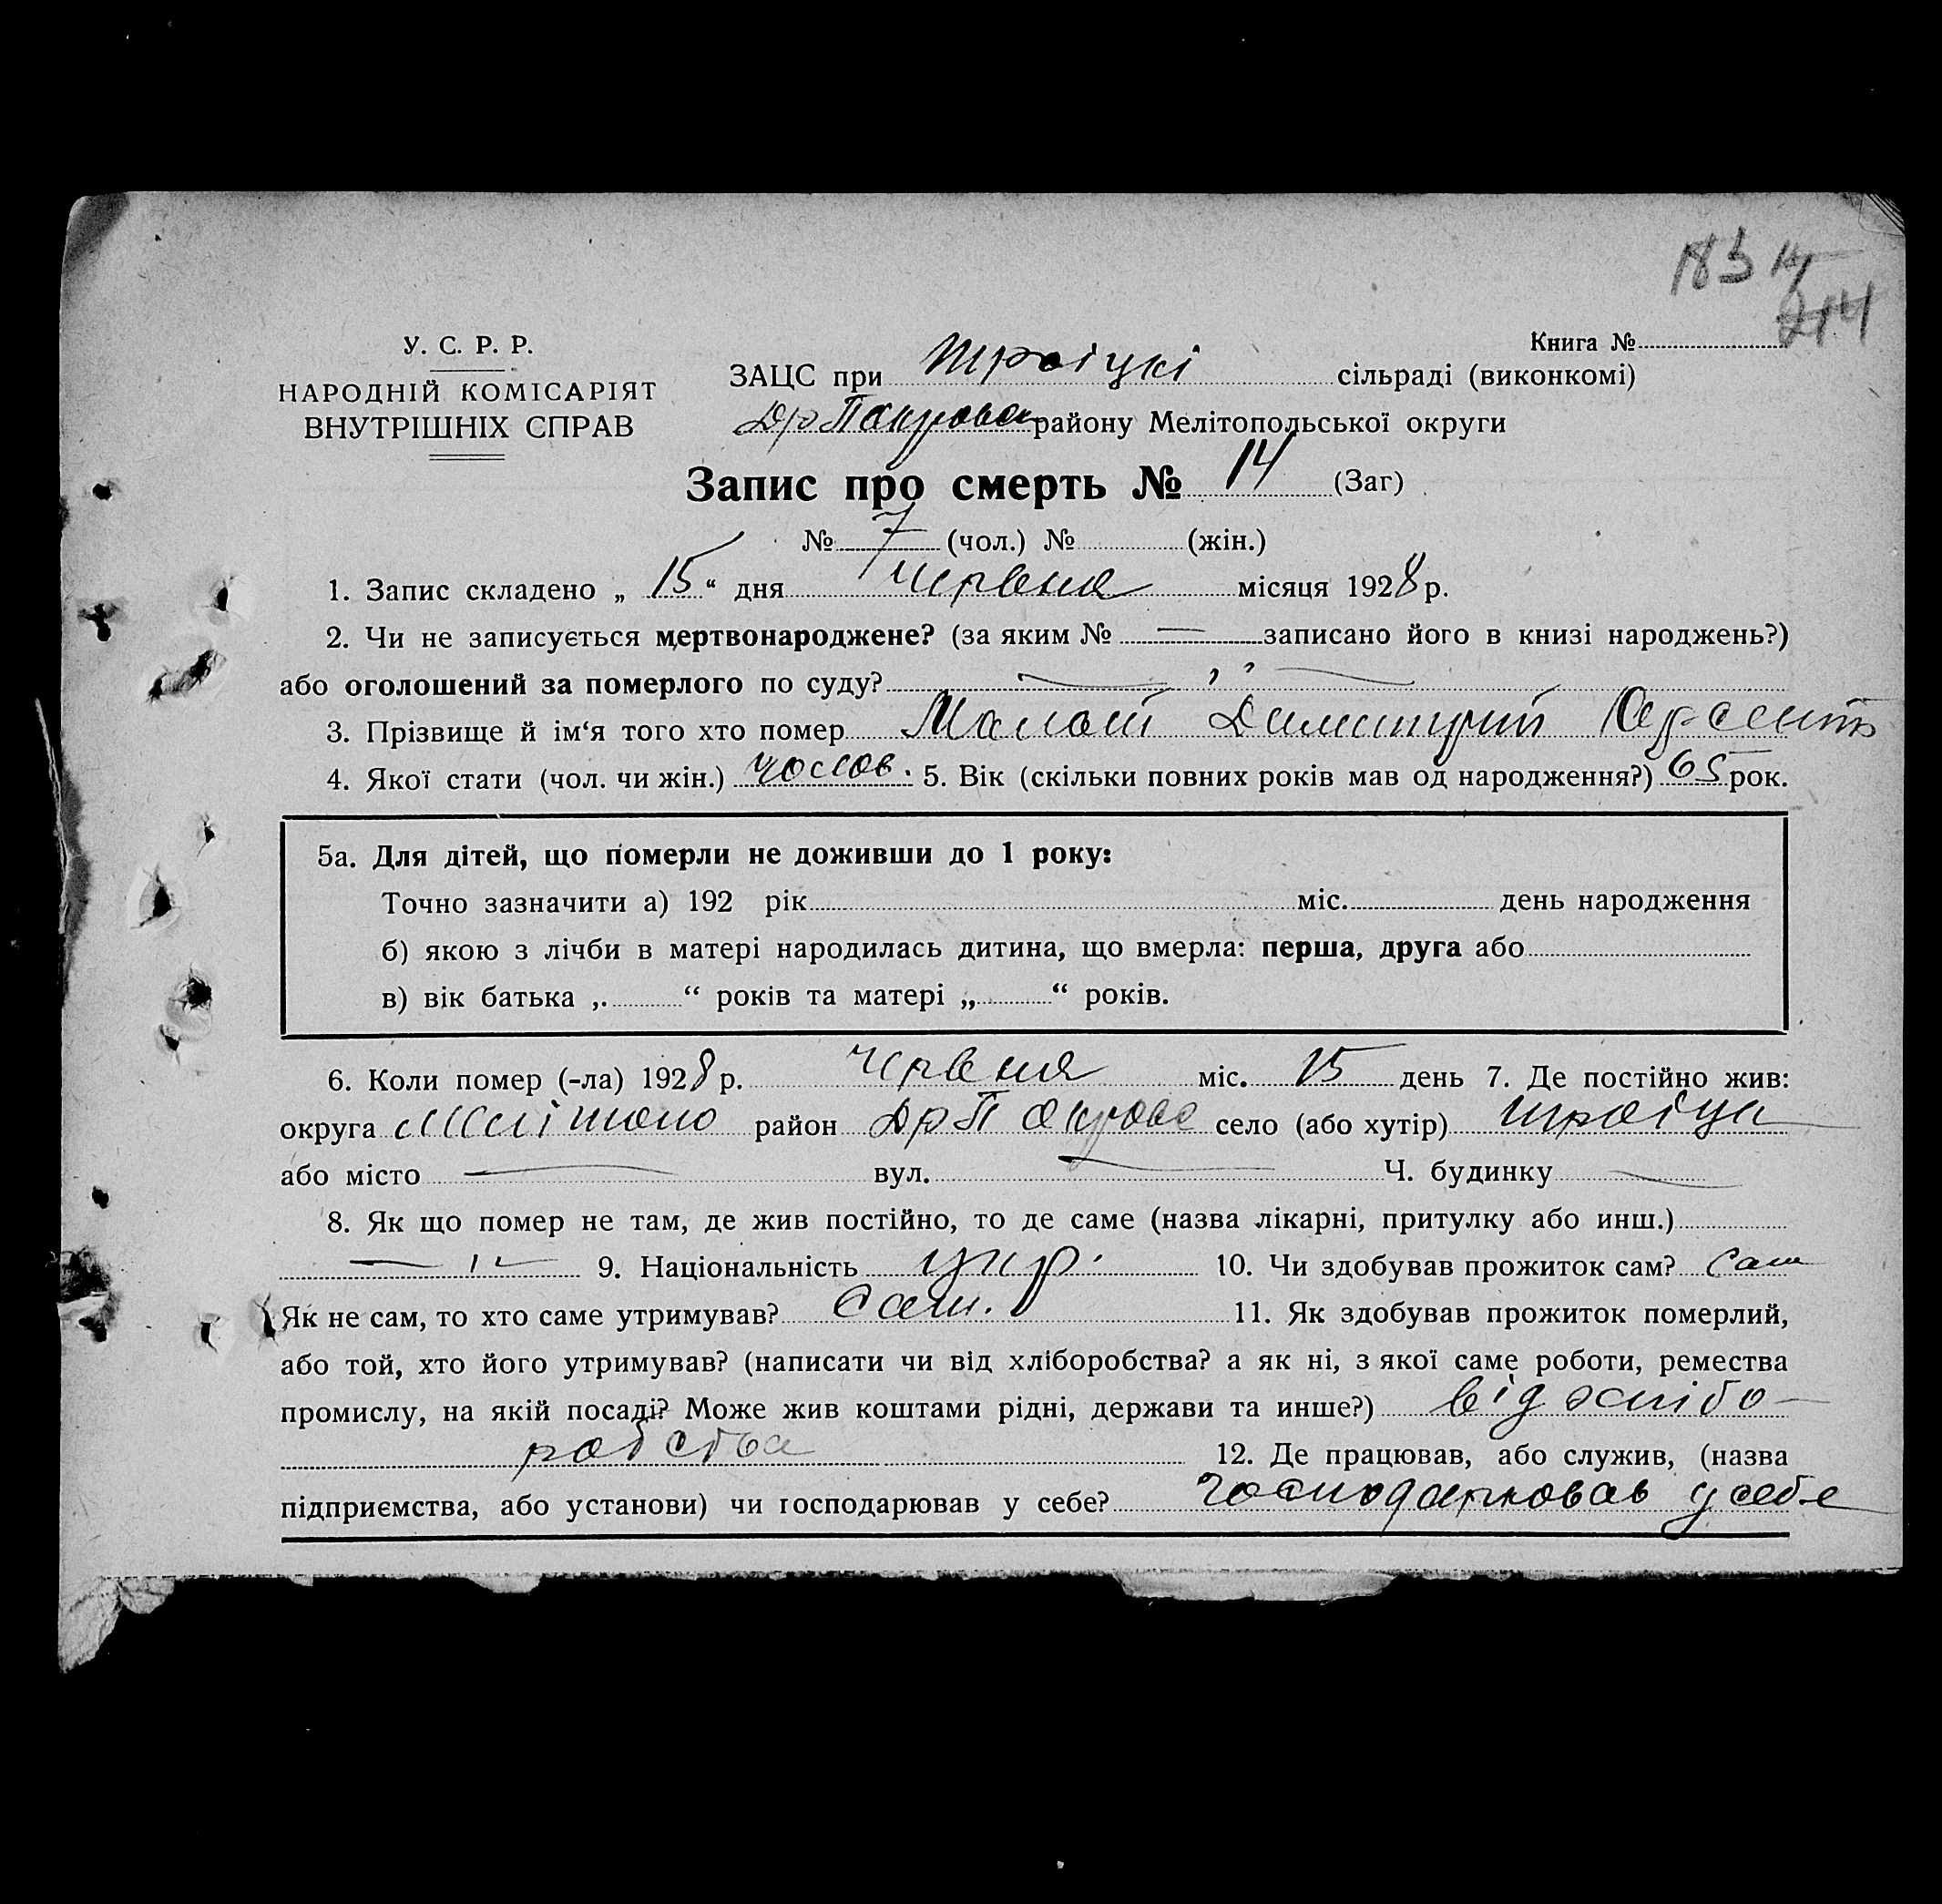 183
214
У. С. Р. Р.
НАРОДНІЙ КОМІСАРІЯТ
ВНУТРІШНІХ СПРАВ
Книга №
ЗАЦС при Троіцкі сільраді (виконкомі)
району Мелітопольської округи
Запис про смерть № 14 (Заг)
№ 7 (чол.) № (жін.)
1. Запис складено „ 15 “ дня Червня місяця 1928 р.
2. Чи не записується мертвонароджене? (за яким № — записано його в книзі народжень?)
або оголошений за померлого по суду? — „ —
3. Прізвище й ім‘я того хто помер Димитрий
4. Якої стати (чол. чи жін.) 5. Вік (скільки повних років мав од народження?) 65 рок.
5а. Для дітей, що померли не доживши до 1 року:
Точно зазначити а) 192 рік міс. день народження
б) якою з лічби в матері народилась дитина, що вмерла: перша, друга або
в) вік батька „ “ років та матері „ “ років.
6. Коли помер (-ла) 1928 р. Червня міс. 15 день 7. Де постійно жив:
округа Мелітопо район село (або хутір)
або місто — вул. — Ч. будинку —
8. Як що помер не там, де жив постійно, то де саме (назва лікарні, притулку або инш.)
— „ — 9. Національність укр. 10. Чи здобував прожиток сам? Сам
Як не сам, то хто саме утримував? Сам. 11. Як здобував прожиток померлий,
або той, хто його утримував? (написати чи від хліборобства? а як ні, з якої саме роботи, ремества
промислу, на якій посаді? Може жив коштами рідні, держави та инше?) від хлібо-
робства 12. Де працював, або служив, (назва
підприємства, або установи) чи господарював у себе? господарював у себе